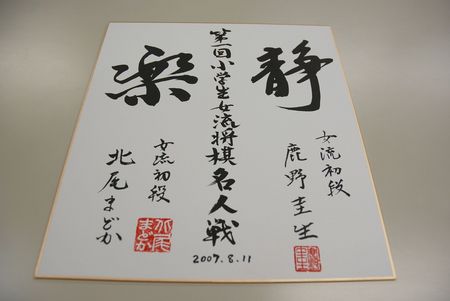 静
女流初段
鹿野圭生
第一回小学生女流将棋名人戦
楽
女流初段
北尾まどか
北尾
まどか
2007.8.11